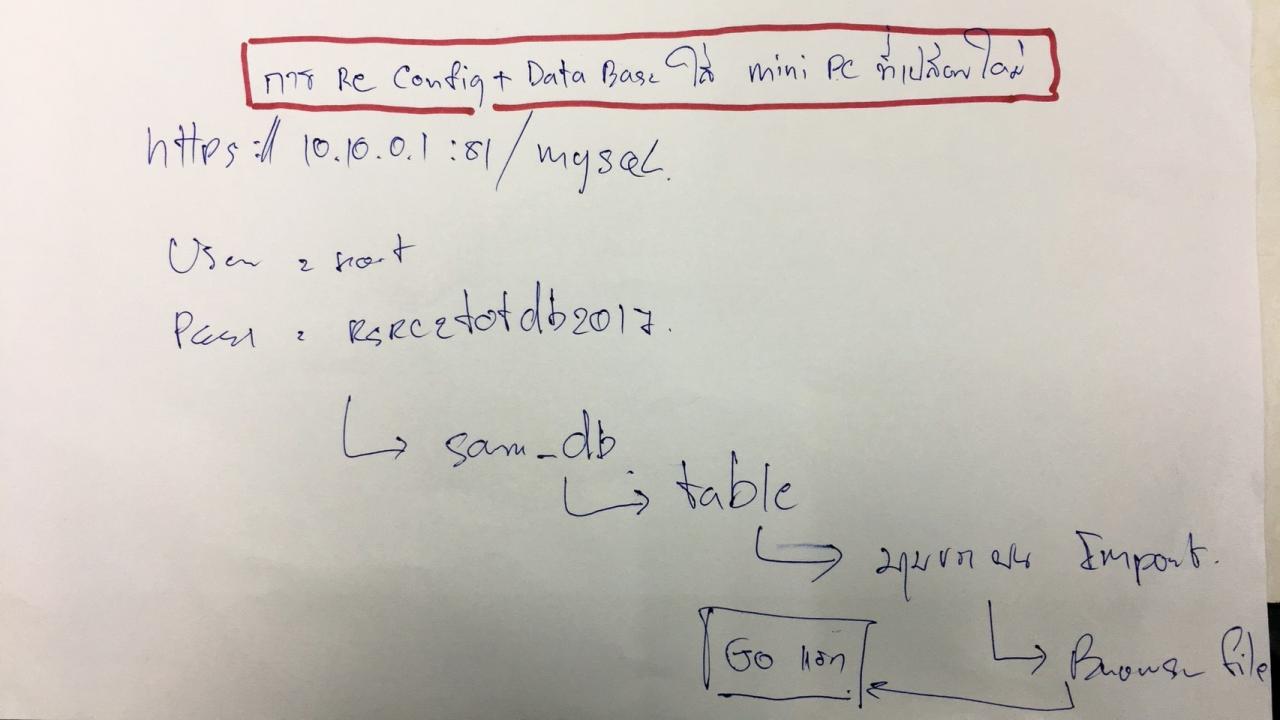 การ Re Config + Data Base ใส่ mini PC ที่เปลี่ยนใหม่
https:// 10.10.0.1 :81/mysql.
User = root
Pass = RSRC2totdb2017.
sam_db
table
มุมขวาบน Import.
Browse file
Go